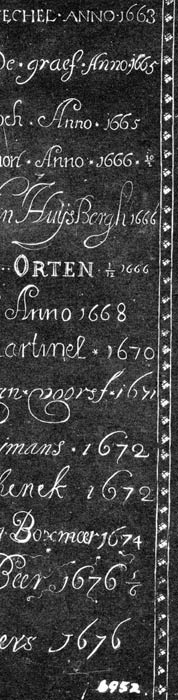 ECHEL · ANNO · 1663
De · graef · Anno · 1665
ch · Anno · 1665
Anno · 1666 · ½
n HuijsBergh 1666
ORTEN · ½ 1666
Anno 1668
artinel · 1670
1671
mans · 1672
henck 1672
Boxmeer 1674
Beer 1676 ⅙
ers 1676
6952